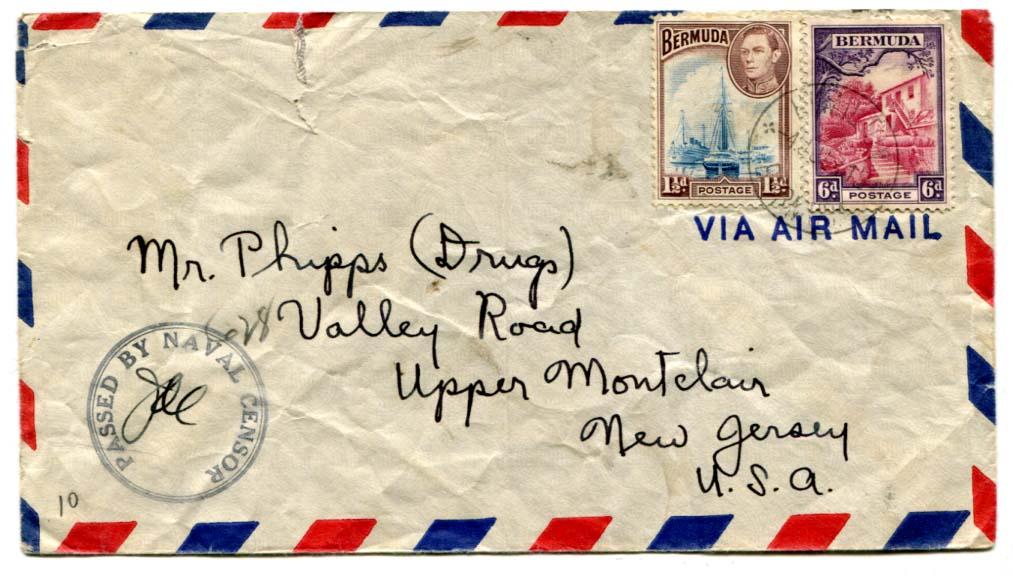 BERMUDA
1½d POSTAGE 1½d
BERMUDA
6d POSTAGE 6d
VIA AIR MAIL
Mr. Phipps (Drugs)
628 Valley Road
Upper Montclair
New Jersey
U.S.A.
PASSED BY NAVAL CENSOR
10